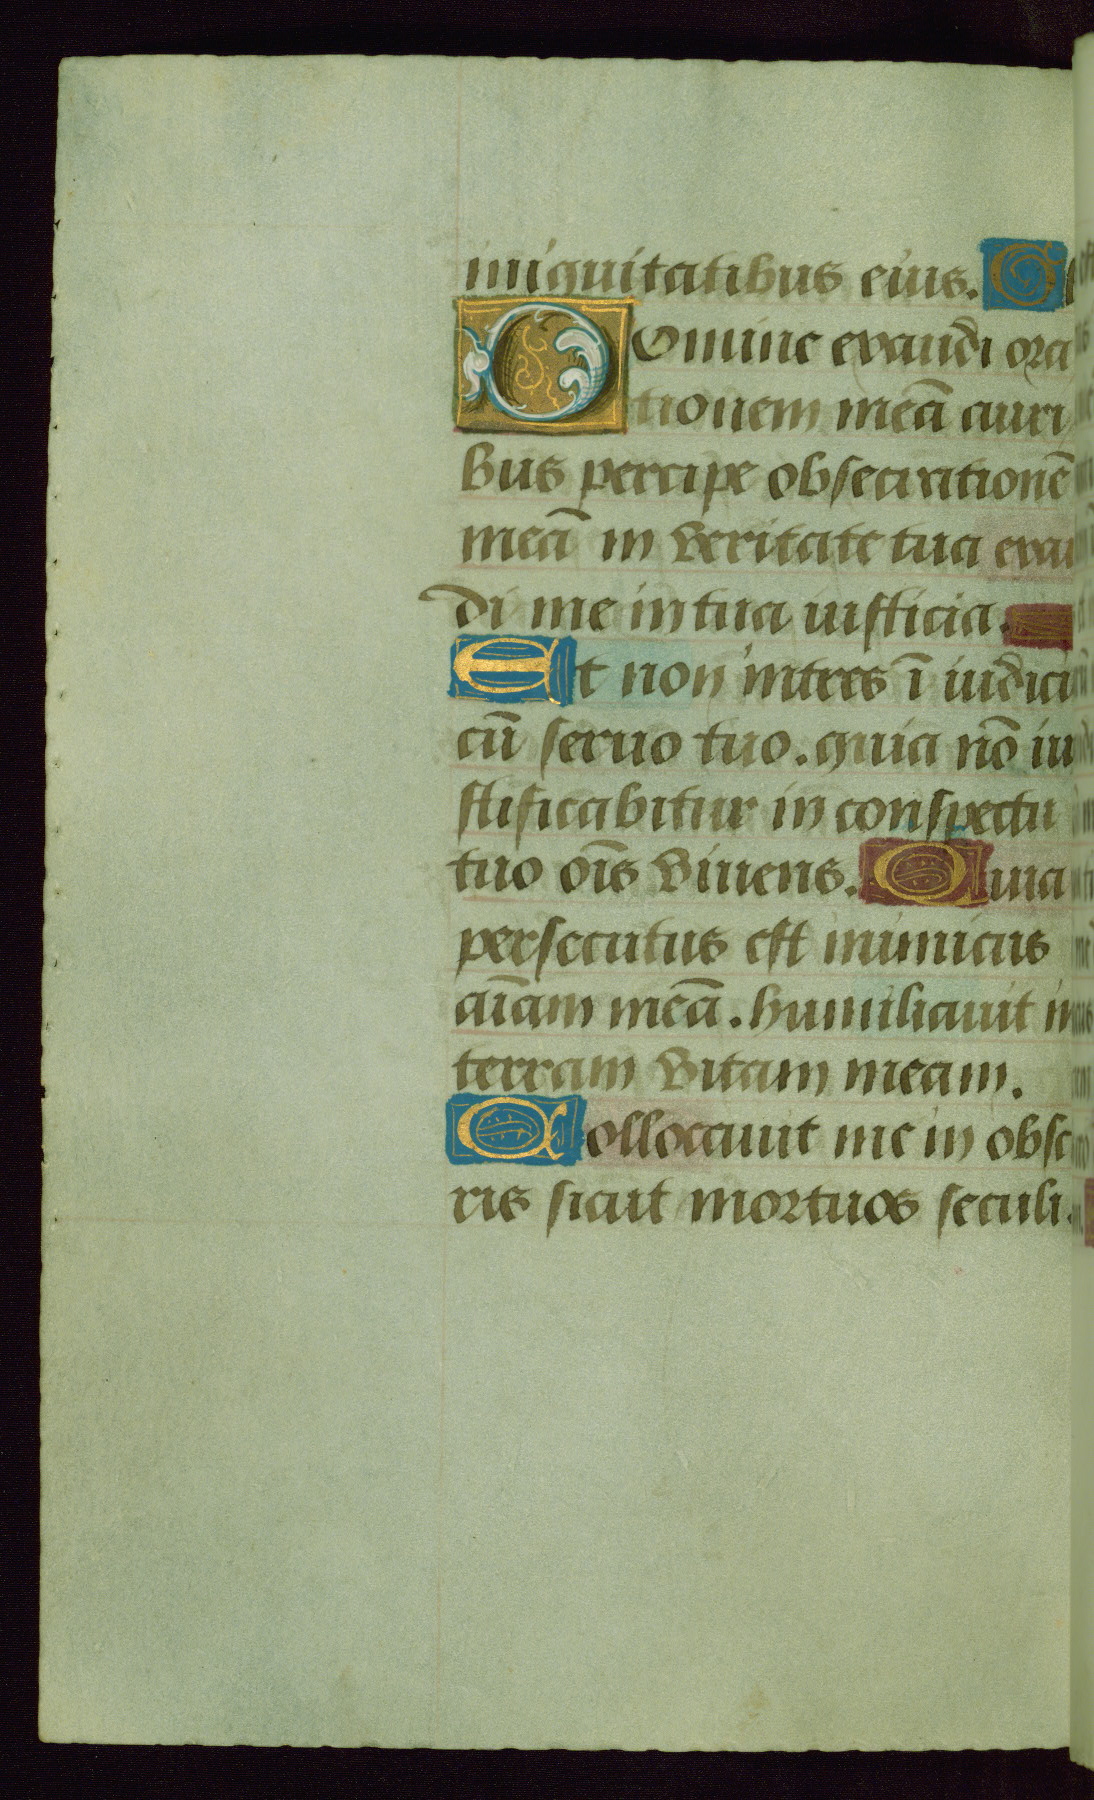 iniquitatibus eius. G
Domine exaudi ora
tionem meã auri
bus percipe obsecrationẽ
meã in veritate tua exau
di me in tua iusticia.
Et non intres ĩ iudici
cũ seruo tuo. quia nõ iu
stificabitur in conspectu
tuo oı̃s viuens. Quia
persecutus est inimicus
aı̃am meã. humiliauit in
terram vitam meam.
Collocauit me in obsc
ris sicut mortuos seculi.